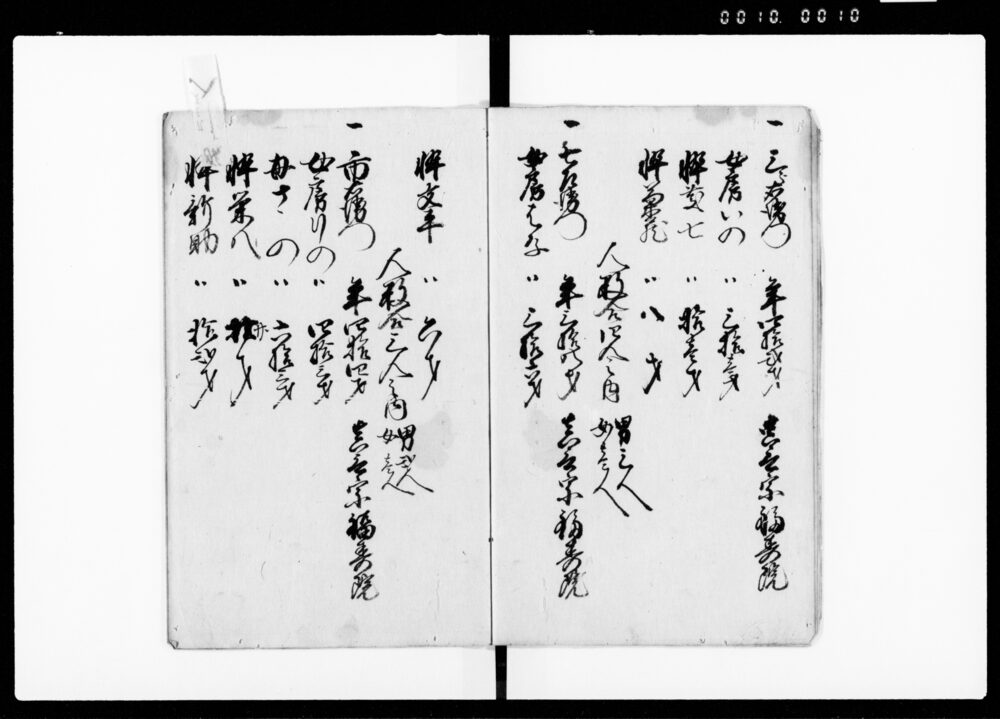 0010 0010
一 三右衛門 年四拾弐才 真言宗福寿院
女房いの 〃 三拾三才
忰 七 〃 拾壱才
忰 〃 八才
人数合四人之内 男三人
女壱人
一 右衛門 年三拾八才 真言宗福寿院
女房 〃 三拾六才
忰文平 〃 六才
人数合三人之内 男弐人
女壱人
一 市右衛門 年四拾四才 真言宗福寿院
女房りの 〃 四拾三才
母さの 〃 六拾三才
忰栄八 〃 才
忰新助 〃 拾弐才